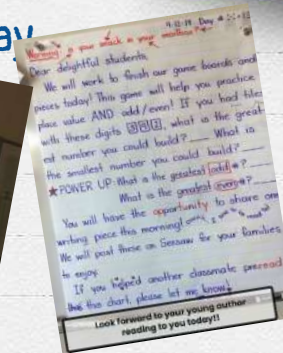 ay
9-12-19 Day
Warmup: is your snack in your mailbox?
Dear delightful students,
We will work to finish our game boards and
pieces today! This game will help you practice
place value AND odd/even! If you had tiles
with these digits, what is the great-
est number you could build? ___ What is
the smallest number you could build? ___
★POWER UP: What is the greatest odd #? ___
What is the greatest even #? ___
You will have the opportunity to share one
writing piece this morning!
We will post these on Seesaw for your families
to enjoy.
If you helped another classmate preread
this chart, please let me know!
Look forward to your young author
reading to you today!!